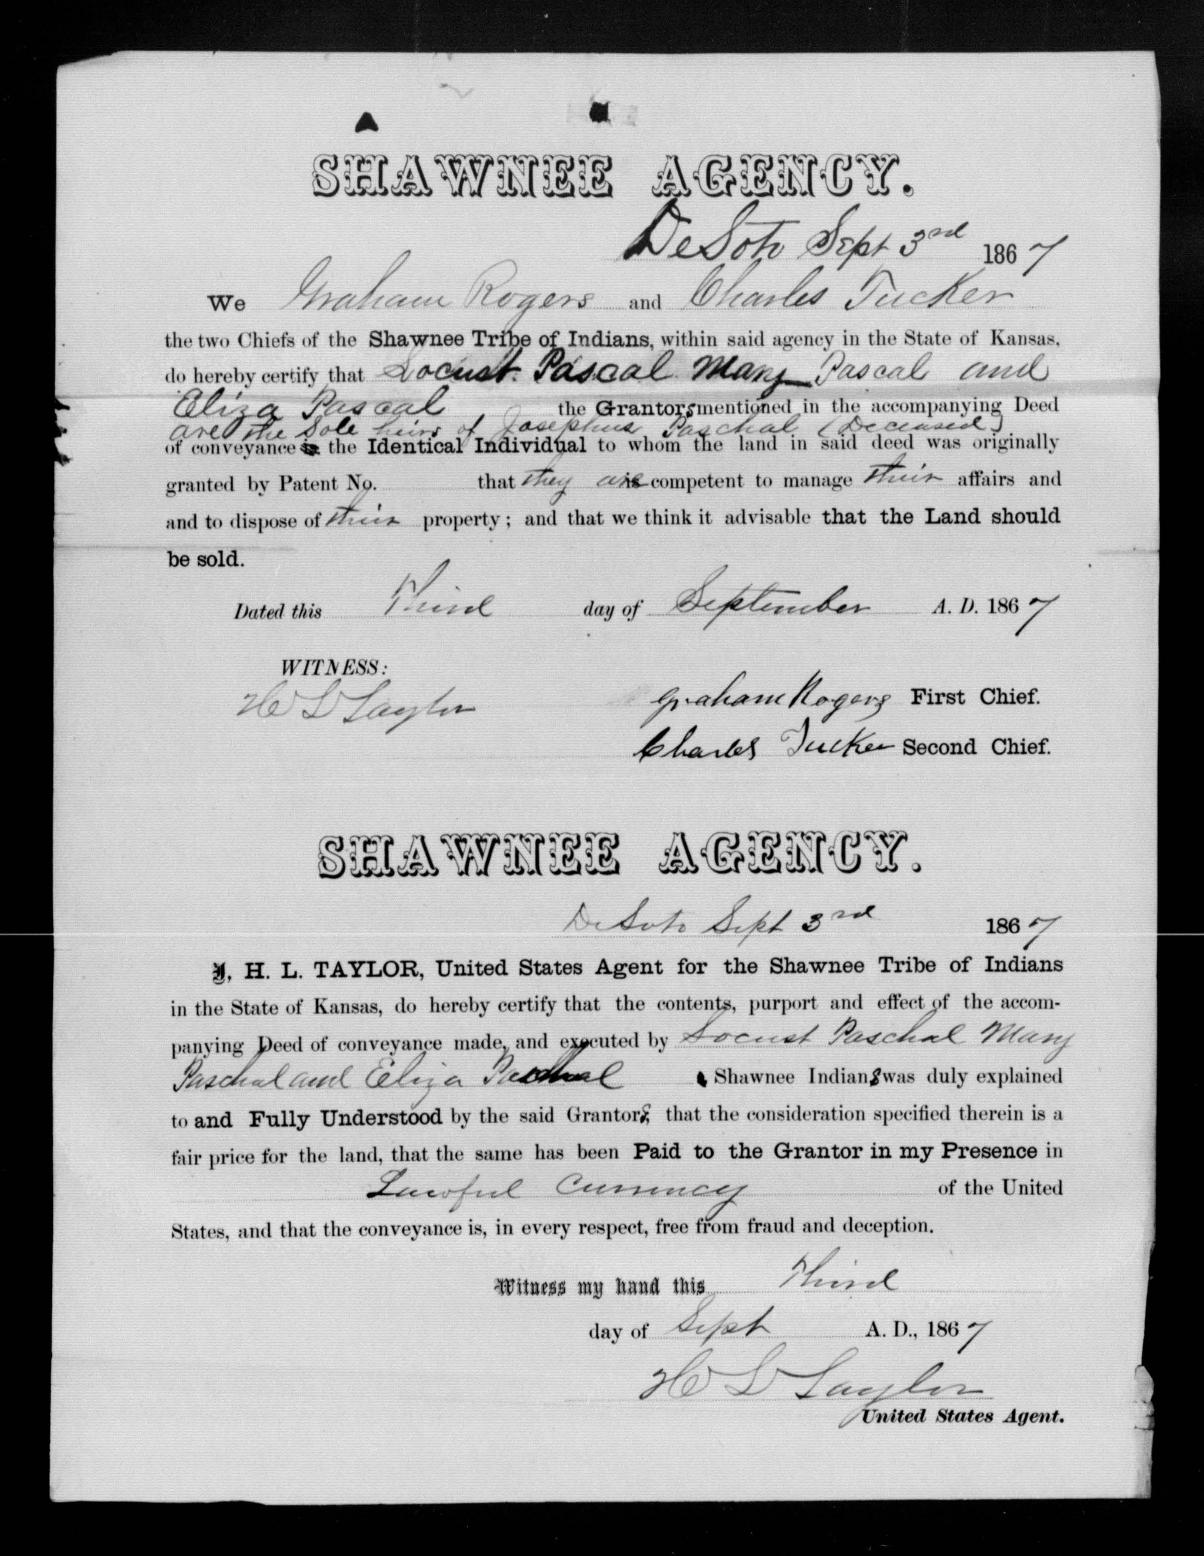 SHAWNEE AGENCY.
De Soto Sept 3rd 1867
We Graham Rogers and Charles Tucker
the two Chiefs of the Shawnee Tribe of Indians, within said agency in the State of Kansas,
do hereby certify that Locust Pascal Mary Pascal and
Eliza Pascal the Grantors mentioned in the accompanying Deed
are the Sole heirs of Josephus Paschal (Deceased)
of conveyance the Identical Individual to whom the land in said deed was originally
granted by Patent No. that they are competent to manage their affairs and
and to dispose of their property; and that we think it advisable that the Land should
be sold.
Dated this Third day of September A. D. 1867
WITNESS:
H L Taylor
Graham Rogers First Chief.
Charles Tucker Second Chief.
SHAWNEE AGENCY.
De Soto Sept 3rd 1867
I, H. L. TAYLOR, United States Agent for the Shawnee Tribe of Indians
in the State of Kansas, do hereby certify that the contents, purport and effect of the accom-
panying Deed of conveyance made, and executed by Locust Paschal Mary
Paschal and Eliza Paschal Shawnee Indians was duly explained
to and Fully Understood by the said Grantors, that the consideration specified therein is a
fair price for the land, that the same has been Paid to the Grantor in my Presence in
Lawful Currency of the United
States, and that the conveyance is, in every respect, free from fraud and deception.
Witness my hand this Third
day of Sept A. D., 1867
H L Taylor
United States Agent.